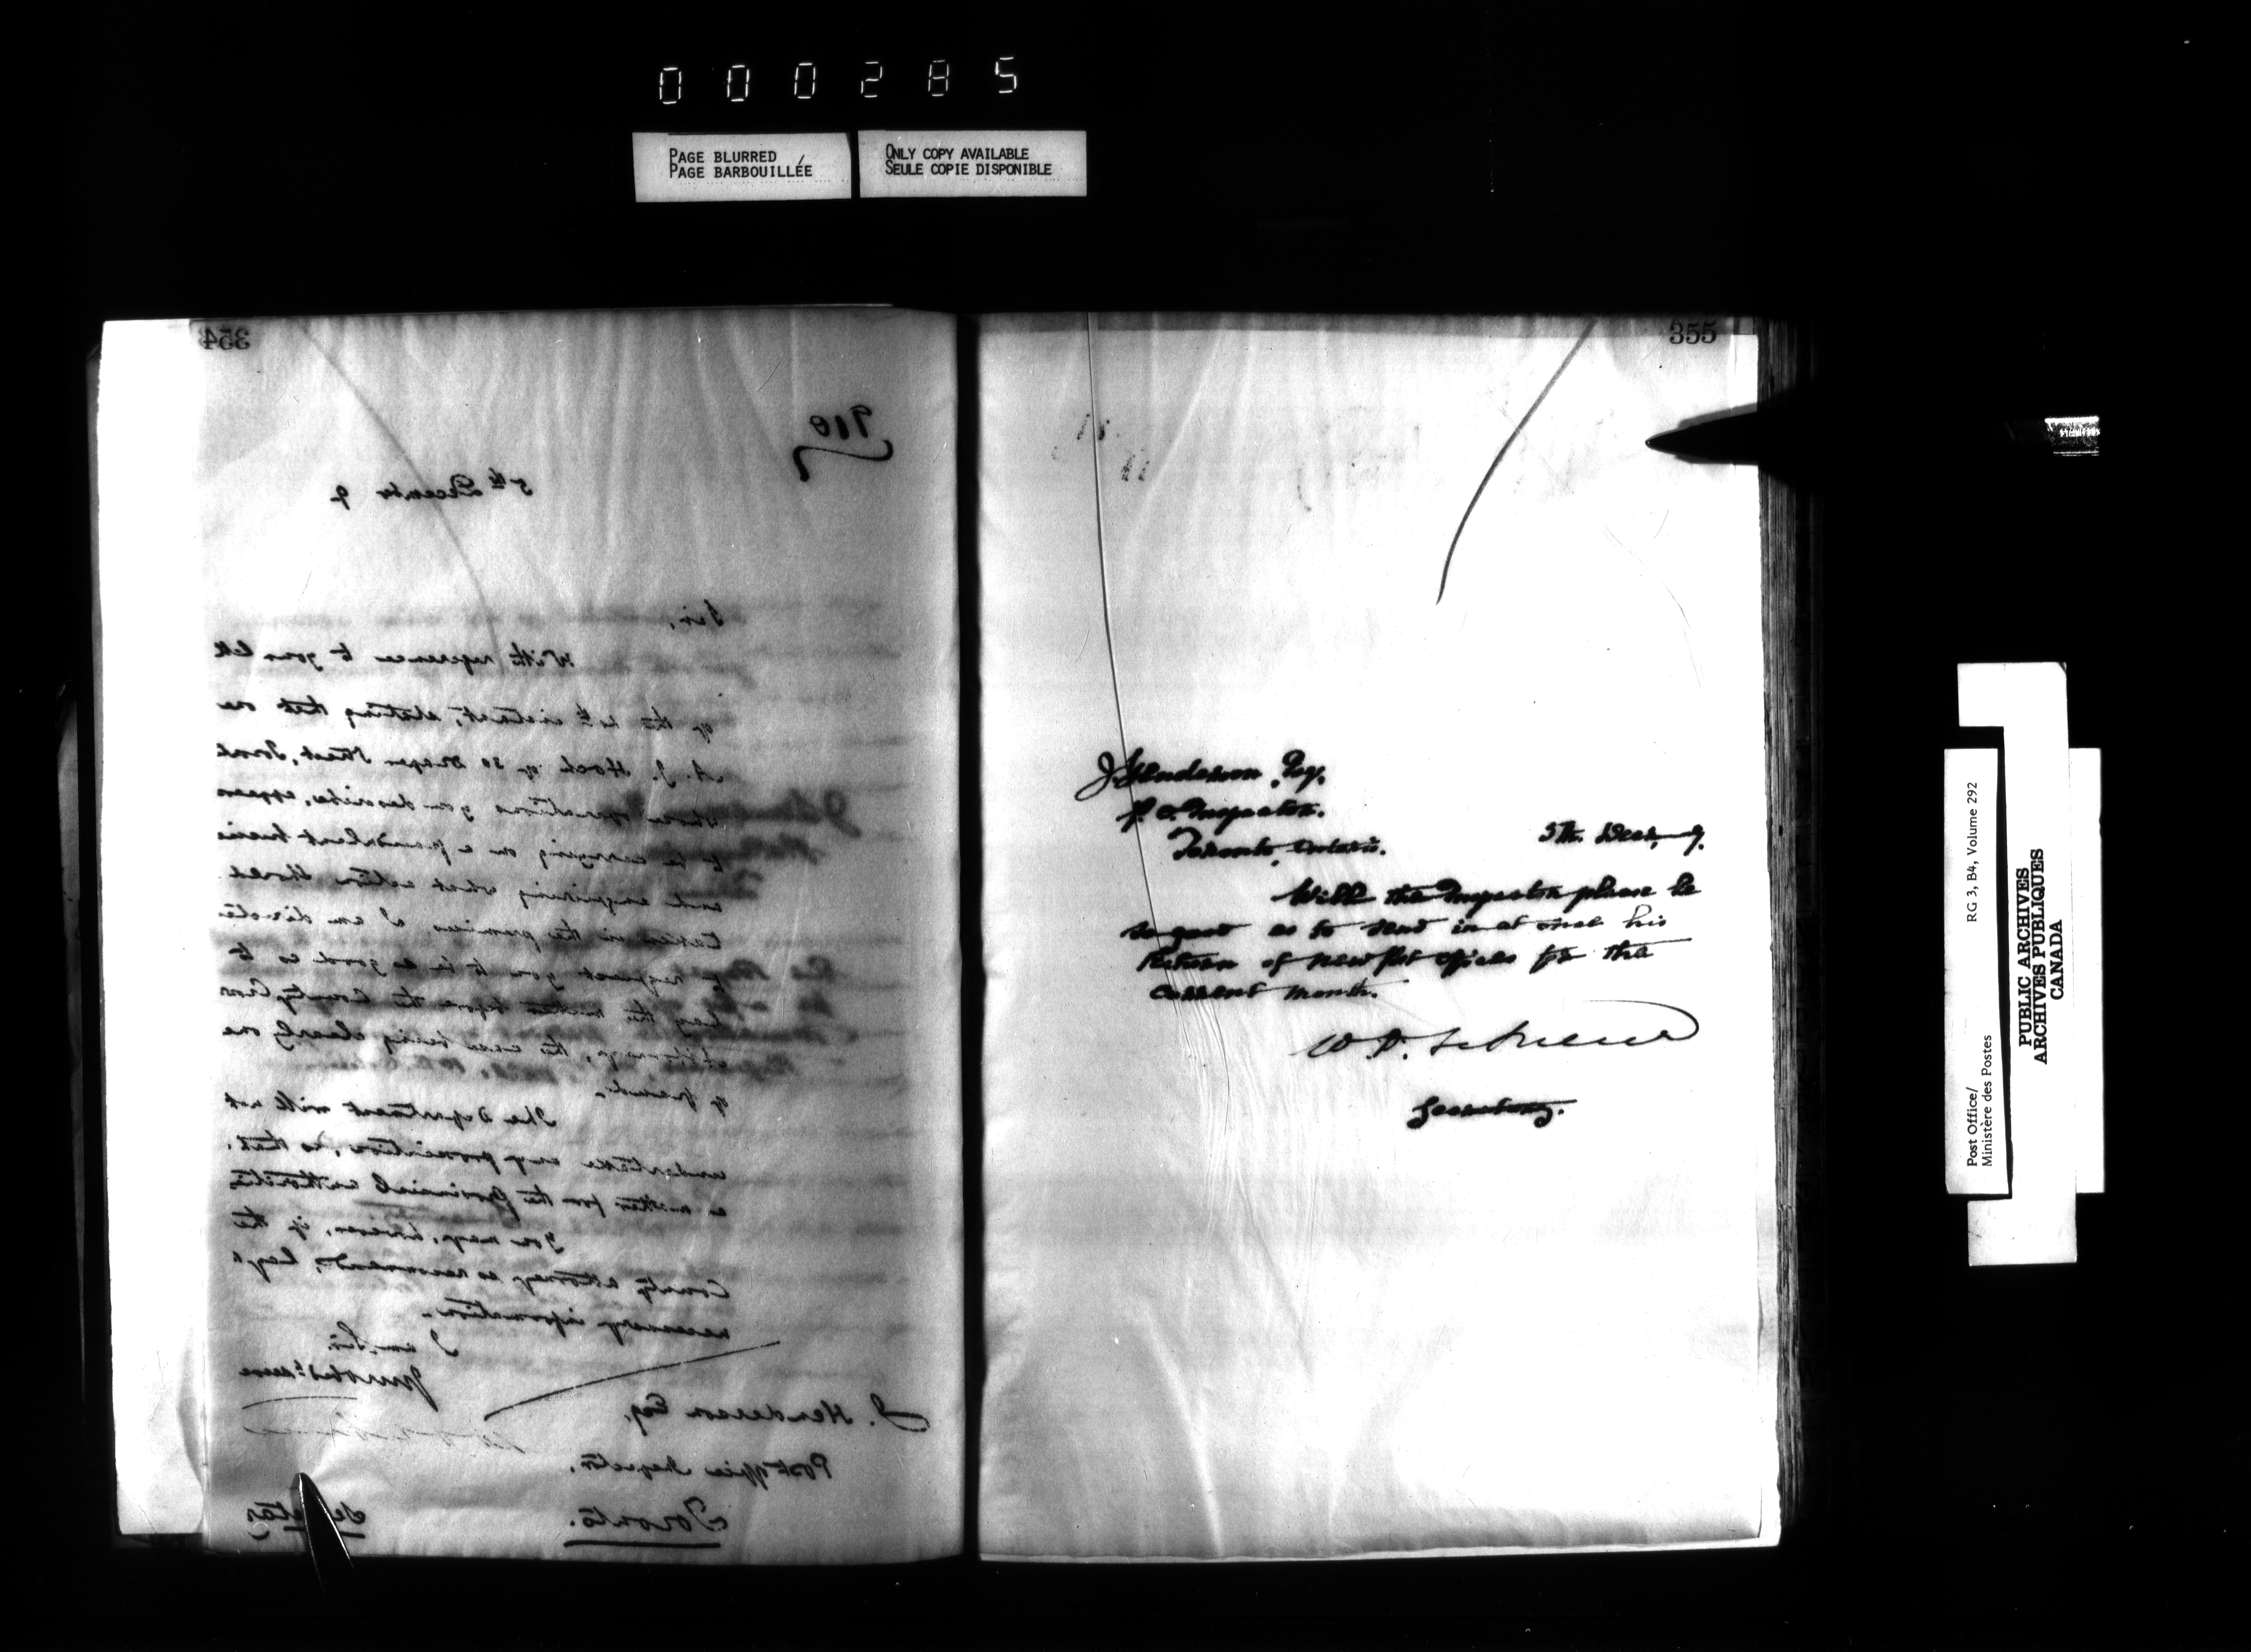 000285
PAGE BLURRED /
PAGE BARBOUILLÉE
ONLY COPY AVAILABLE
SEULE COPIE DISPONIBLE
354
910
5th December 9
Sir,
With reference to your lett
of the 4th instant, stating that one
A. J. Hoch of 30 Draper Street, Toront
whose operations you describe, appear
to be carrying on a fraudulent busine
and enquiring what action should
taken in the premises I am directe
to request you to be so good as to
lay the matter before the County Crow
Attorney, the case being clearly one
of fraud.
The Department will not
undertake any prosecution, as that
a matter for the Provincial authorities
You may, however, if the
County Attorney so recommends, lay
necessary information.
I am, Sir,
Your obdt. serv
J. Henderson Esq.
Post Office Inspector,
Toronto.
Secretary
355
J. Henderson, Esq.
P. O. Inspector.
Toronto, Ontario.
5th. Decr, 9.
Will the Inspector please be
so good as to send in at once his
Return of New Post Offices for the
current month.
Secretary.
Post Office/
Ministère des Postes
RG 3, B4, Volume 292
PUBLIC ARCHIVES
ARCHIVES PUBLIQUES
CANADA